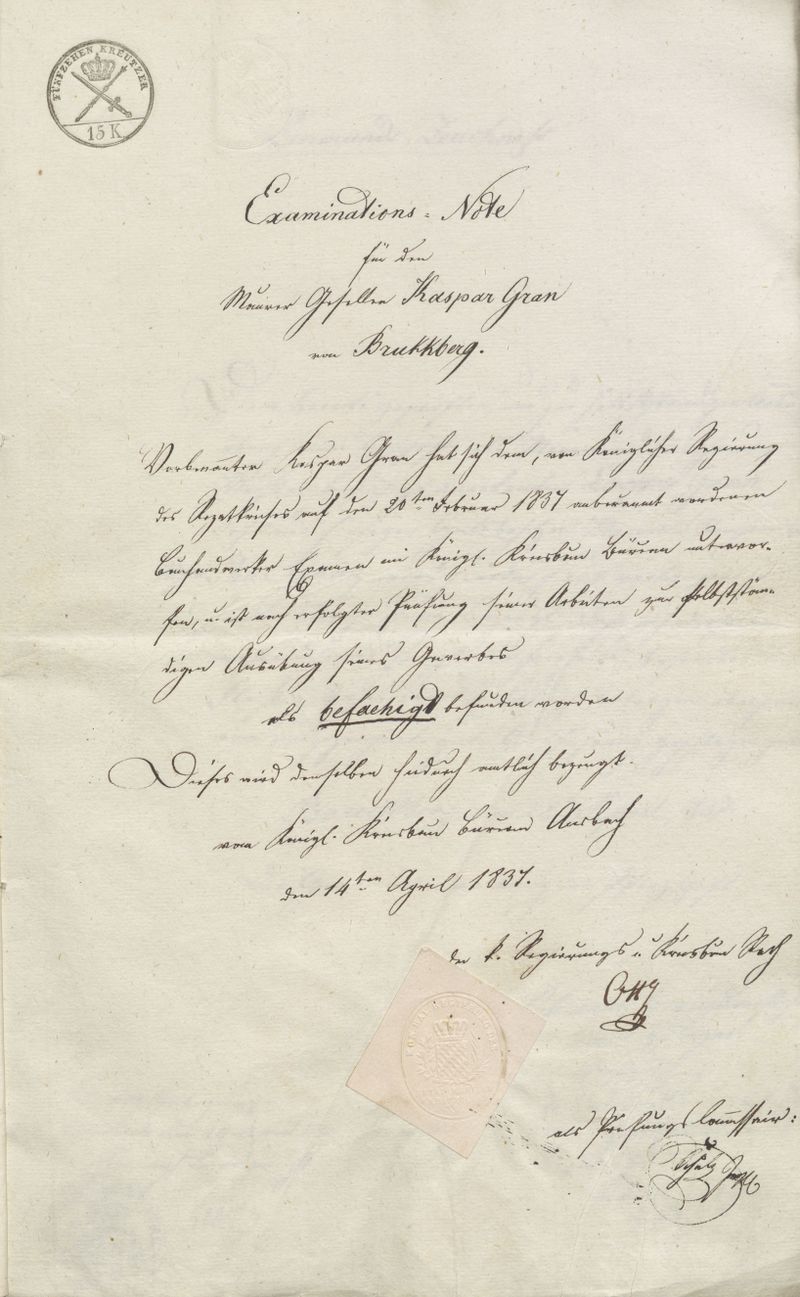 FÜNFZEHEN KREUTZER
15 K.
Examinations-Note
für den
Maurer Gesellen Kaspar Gran
von Brukkberg.
Vorbenannter Kaspar Gran hat sich dem, von Königlicher Regierung
des Rezatkreises auf den 20ten Februar 1837 anberaumt wordenen
Bauhandwerker Examen im Königl. Kreisbau Büreau unterwor-
fen, u. ist nach erfolgter Prüfung seiner Arbeiten zur selbststän-
digen Ausübung seines Gewerbes
als befaehigt befunden worden
Dieses wird demselben hiedurch amtlich bezeugt.
vom Königl. Kreisbau Büreau Ansbach
den 14ten April 1837.
der k. Regierungs u. Kreisbau Rath
als Prüfungs Commissair: